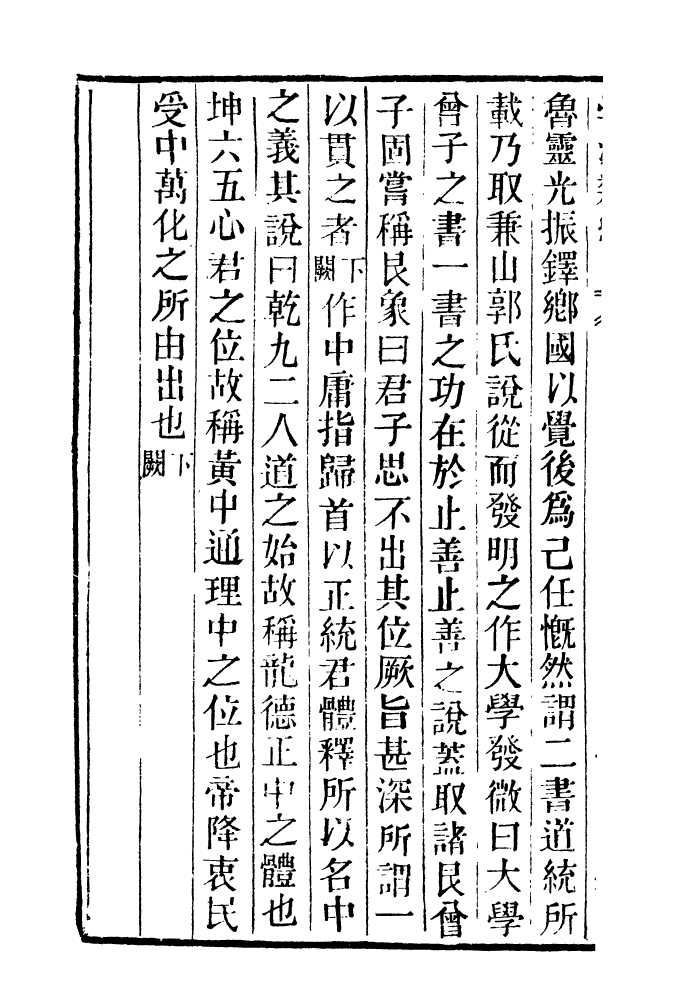 魯靈光振鐸鄉國以覺後為己任慨然謂二書道統所
載乃取兼山郭氏說從而發明之作大學發微曰大學
曾子之書一書之功在於止善止善之說蓋取諸艮曾
子固嘗稱艮象曰君子思不出其位厥旨甚深所謂一
以貫之者下闕作中庸指歸首以正統君體釋所以名中
之義其說曰乾九二人道之始故稱龍德正中之體也
坤六五心君之位故稱黃中通理中之位也帝降衷民
受中萬化之所由出也下闕